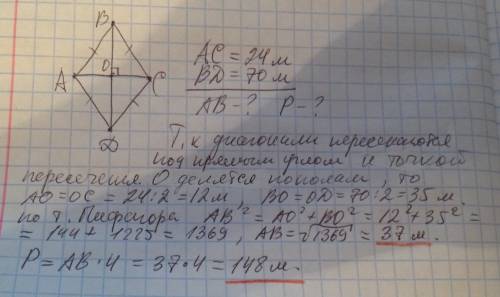 B
A
O
C
D
AC = 24 м
BD = 70 м
AB - ? P - ?
Т. к диагонали пересекаются
под прямым углом и точкой
пересечения O делятся пополам, то
AO = OC = 24 : 2 = 12 м, BO = OD = 70 : 2 = 35 м.
по т. Пифагора AB² = AO² + BO² = 12² + 35² =
= 144 + 1225 = 1369, AB = √1369 = 37 м.
P = AB · 4 = 37 · 4 = 148 м.